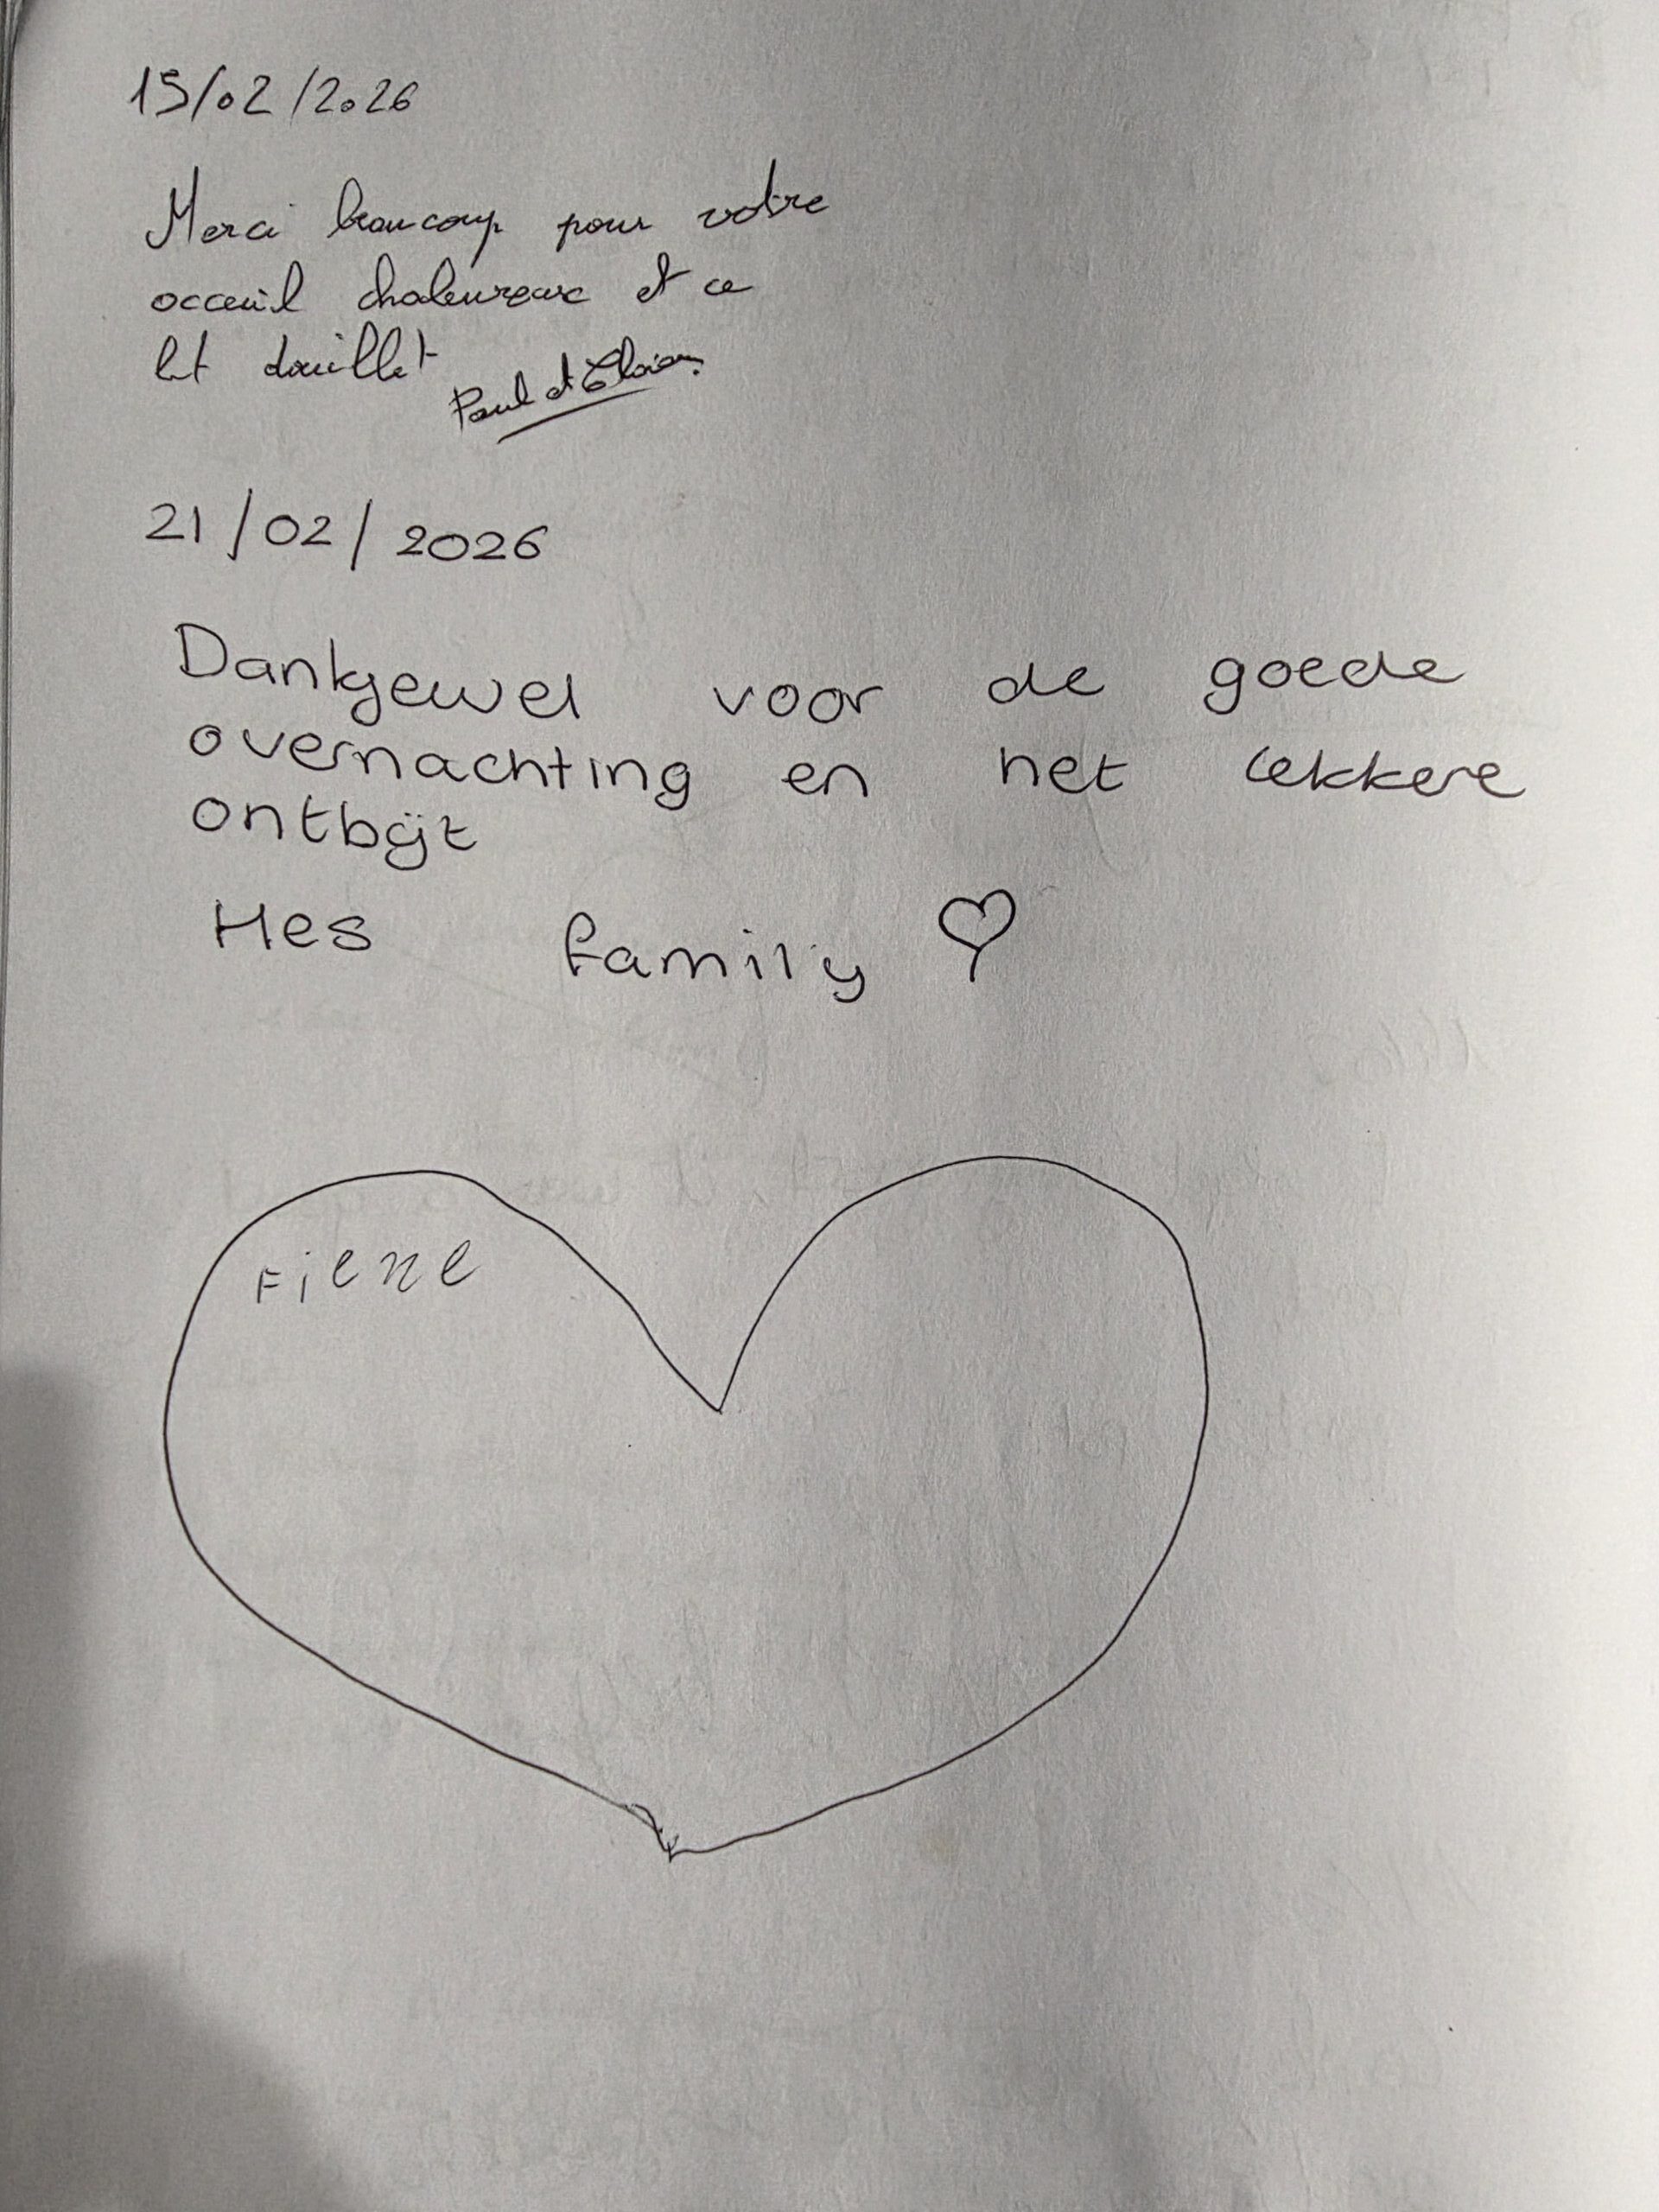 15/02/2026
Merci beaucoup pour votre
acceuil chaleureux et ce
lit douillet
Paul et
21/02/2026
Dankjewel voor de goede
overnachting en het lekkere
ontbijt
Hes family
Fiene